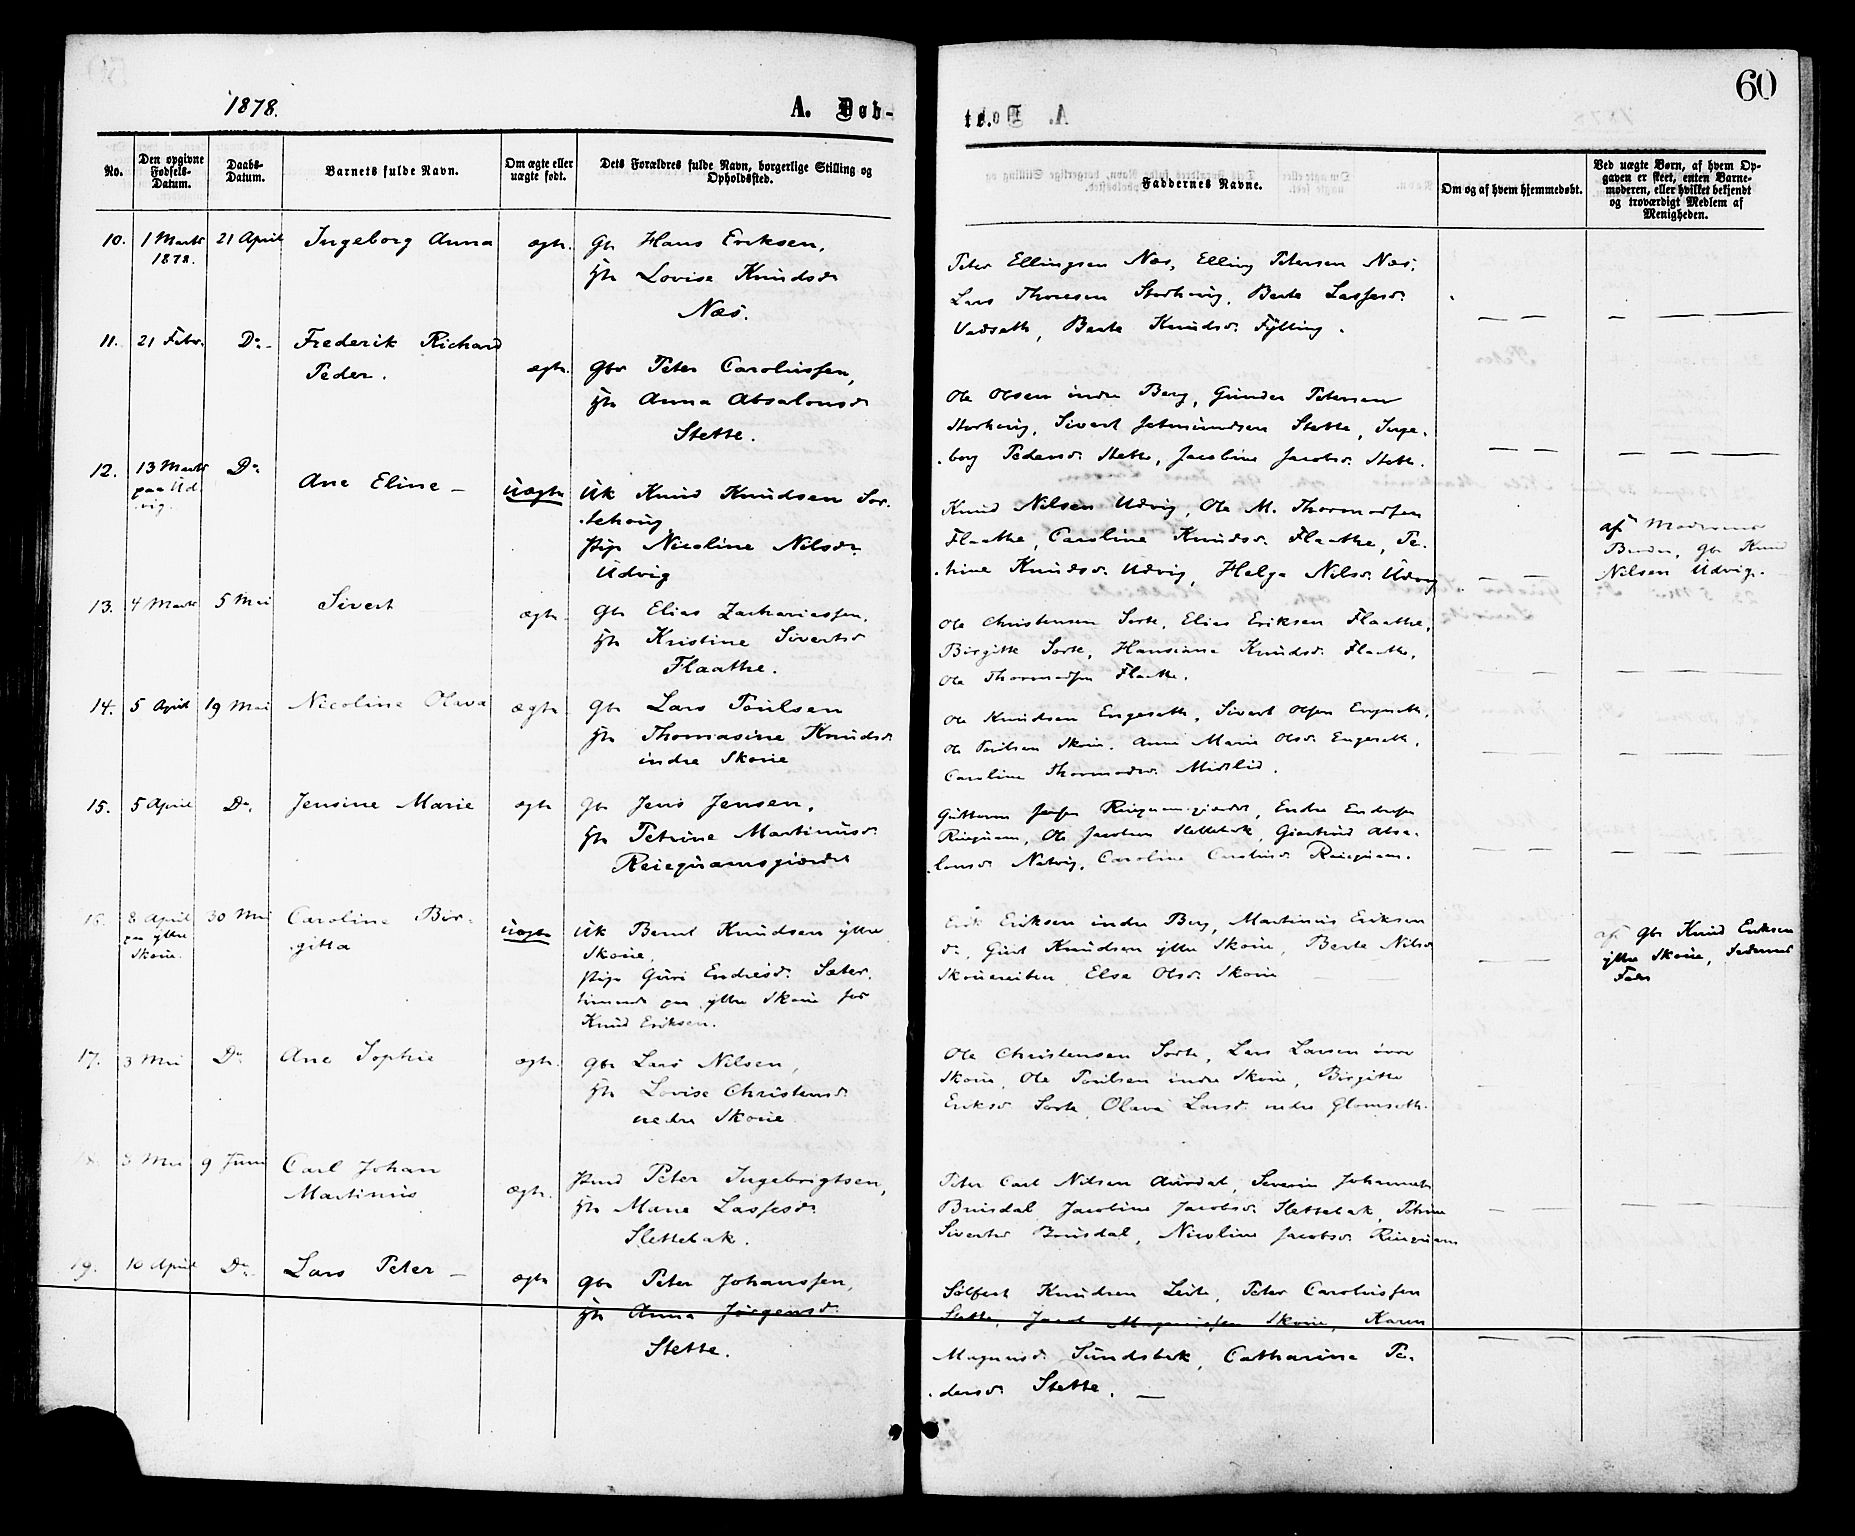 1878.
A. Døb-
te.
60
No.
Den opgivne Fødsels-Datum.
Daabs-Datum.
Barnets fulde Navn.
Om ægte eller uægte født.
Dets Forældres fulde Navn, borgerlige Stilling og Opholdssted.
Faddernes Navne.
Om og af hvem hjemmedøbt.
Ved uægte Børn, af hvem Opgaven er skeet, enten Barnemoderen, eller hvilket bekjendt og troværdigt Medlem af Menigheden.
10. 1 Marts 1878. 21 April Ingeborg Anna ægte. Gbr Hans Eriksen,
Hr Lovise Knudsdr
Næs.
Peter Ellingsen Næs, Elling Petersen Næs,
Lars Thoresen Storhoug, Berte Lassesdr
Vadseth, Berte Knudsdr Fylling.
11. 21 Febr. Do Frederik Richard
Peder. ægte. Gbr Peter Carolussen,
Hr Anna Absalonsdr
Stette.
Ole Olsen indre Berg, Gunder Petersen
Storhoug, Sivert Jetmundsen Stette, Inge-
borg Pedersdr Stette, Jacobine Jacobsdr Stette.
12. 13 Marts paa Ud-vig. Do Ane Eline - Uægte UK Knud Knudsen Sor-
tehoug
Pige Nicoline Nilsdr
Udvig
Knud Nilsen Udvig, Ole M. Thormodsen
Flaathe, Caroline Knudsdr Flaathe, Pe-
trine Knudsdr Udvig, Helga Nilsdr Udvig
af Moderens
Broder, Gbr Knud
Nilsen Udvig.
13. 4 Marts 5 Mai Sivert ægte. Gbr Elias Zachariassen,
Hr Kristine Sivertsdr
Flaathe.
Ole Christensen Sorte, Elias Eriksen Flaathe,
Birgitte Sorte, Hansiana Knudsdr Flaathe,
Ole Thormodsen Flaathe.
14. 5 April 19 Mai Nicoline Olava ægte Gbr Lars Poulsen
Hr Thomasine Knudsdr
indre Skoue
Ole Knudsen Engeseth, Sivert Olsen Engeseth,
Ole Poulsen Skoue. Anne Marie Olsdr Engeseth,
Caroline Thormodsdr Midtlid.
15. 5 April Do Jensine Marie ægte Gbr Jens Jensen,
Hr Petrine Martinusdr
Reiequamsgjærdet
Guttorm Reiequamsgjærdet, Endre Endresen
Reiequam, Ole Jacobsen Slettebak, Gjertrud Absa-
lonsdr Natvig, Caroline Carolusdr Reiequam.
16. 8 April paa ytre Skoue. 30 Mai Caroline Bir-
gitta Uægte UK Bernt Knudsen ytre
Skoue.
Pige Guri Endresdr Sæter,
tjenende paa ytre Skoue hos
Knud Eriksen.
Erik Eriksen indre Berg, Martinus Eriksen
do, Knudsen ytre Skoue, Berte Nilsdr
Skouereiten Elsa Olsdr Skoue
af Gbr Knud Eriksen
ytre Skoue,
Fader
17. 3 Mai Do Ane Sophie ægte. Gbr Lars Nilsen,
Hr Lovise Christensdr
nedre Skoue
Ole Christensen Sorte, Lars Larsen øvre
Skoue, Ole Poulsen indre Skoue, Birgitte
Eriksdr Sorte, Olava Larsdr indre Glomseth.
18. 3 Mai 9 Juni Carl Johan
Martinus ægte. Pmd Peter Ingebrigtsen,
Hr Marie Lassesdr
Slettebak.
Peter Carl Nilsen Aursdal, Severin Johannes
Bruusdal, Jacobine Jacobsdr Slettebak, Petrine
Sivertsdr Bruusdal, Nicoline Jacobsdr Reiequam
19. 10 April Do Lars Peter - ægte Gbr Peter Johanssen,
Hr Anna Jørgensdr
Stette.
Sølfest Knudsen Leite, Peter Carolussen
Stette, Jacob Skoue, Karen
Magnusdr Sundsbak, Catharine Pe-
dersdr Stette. -